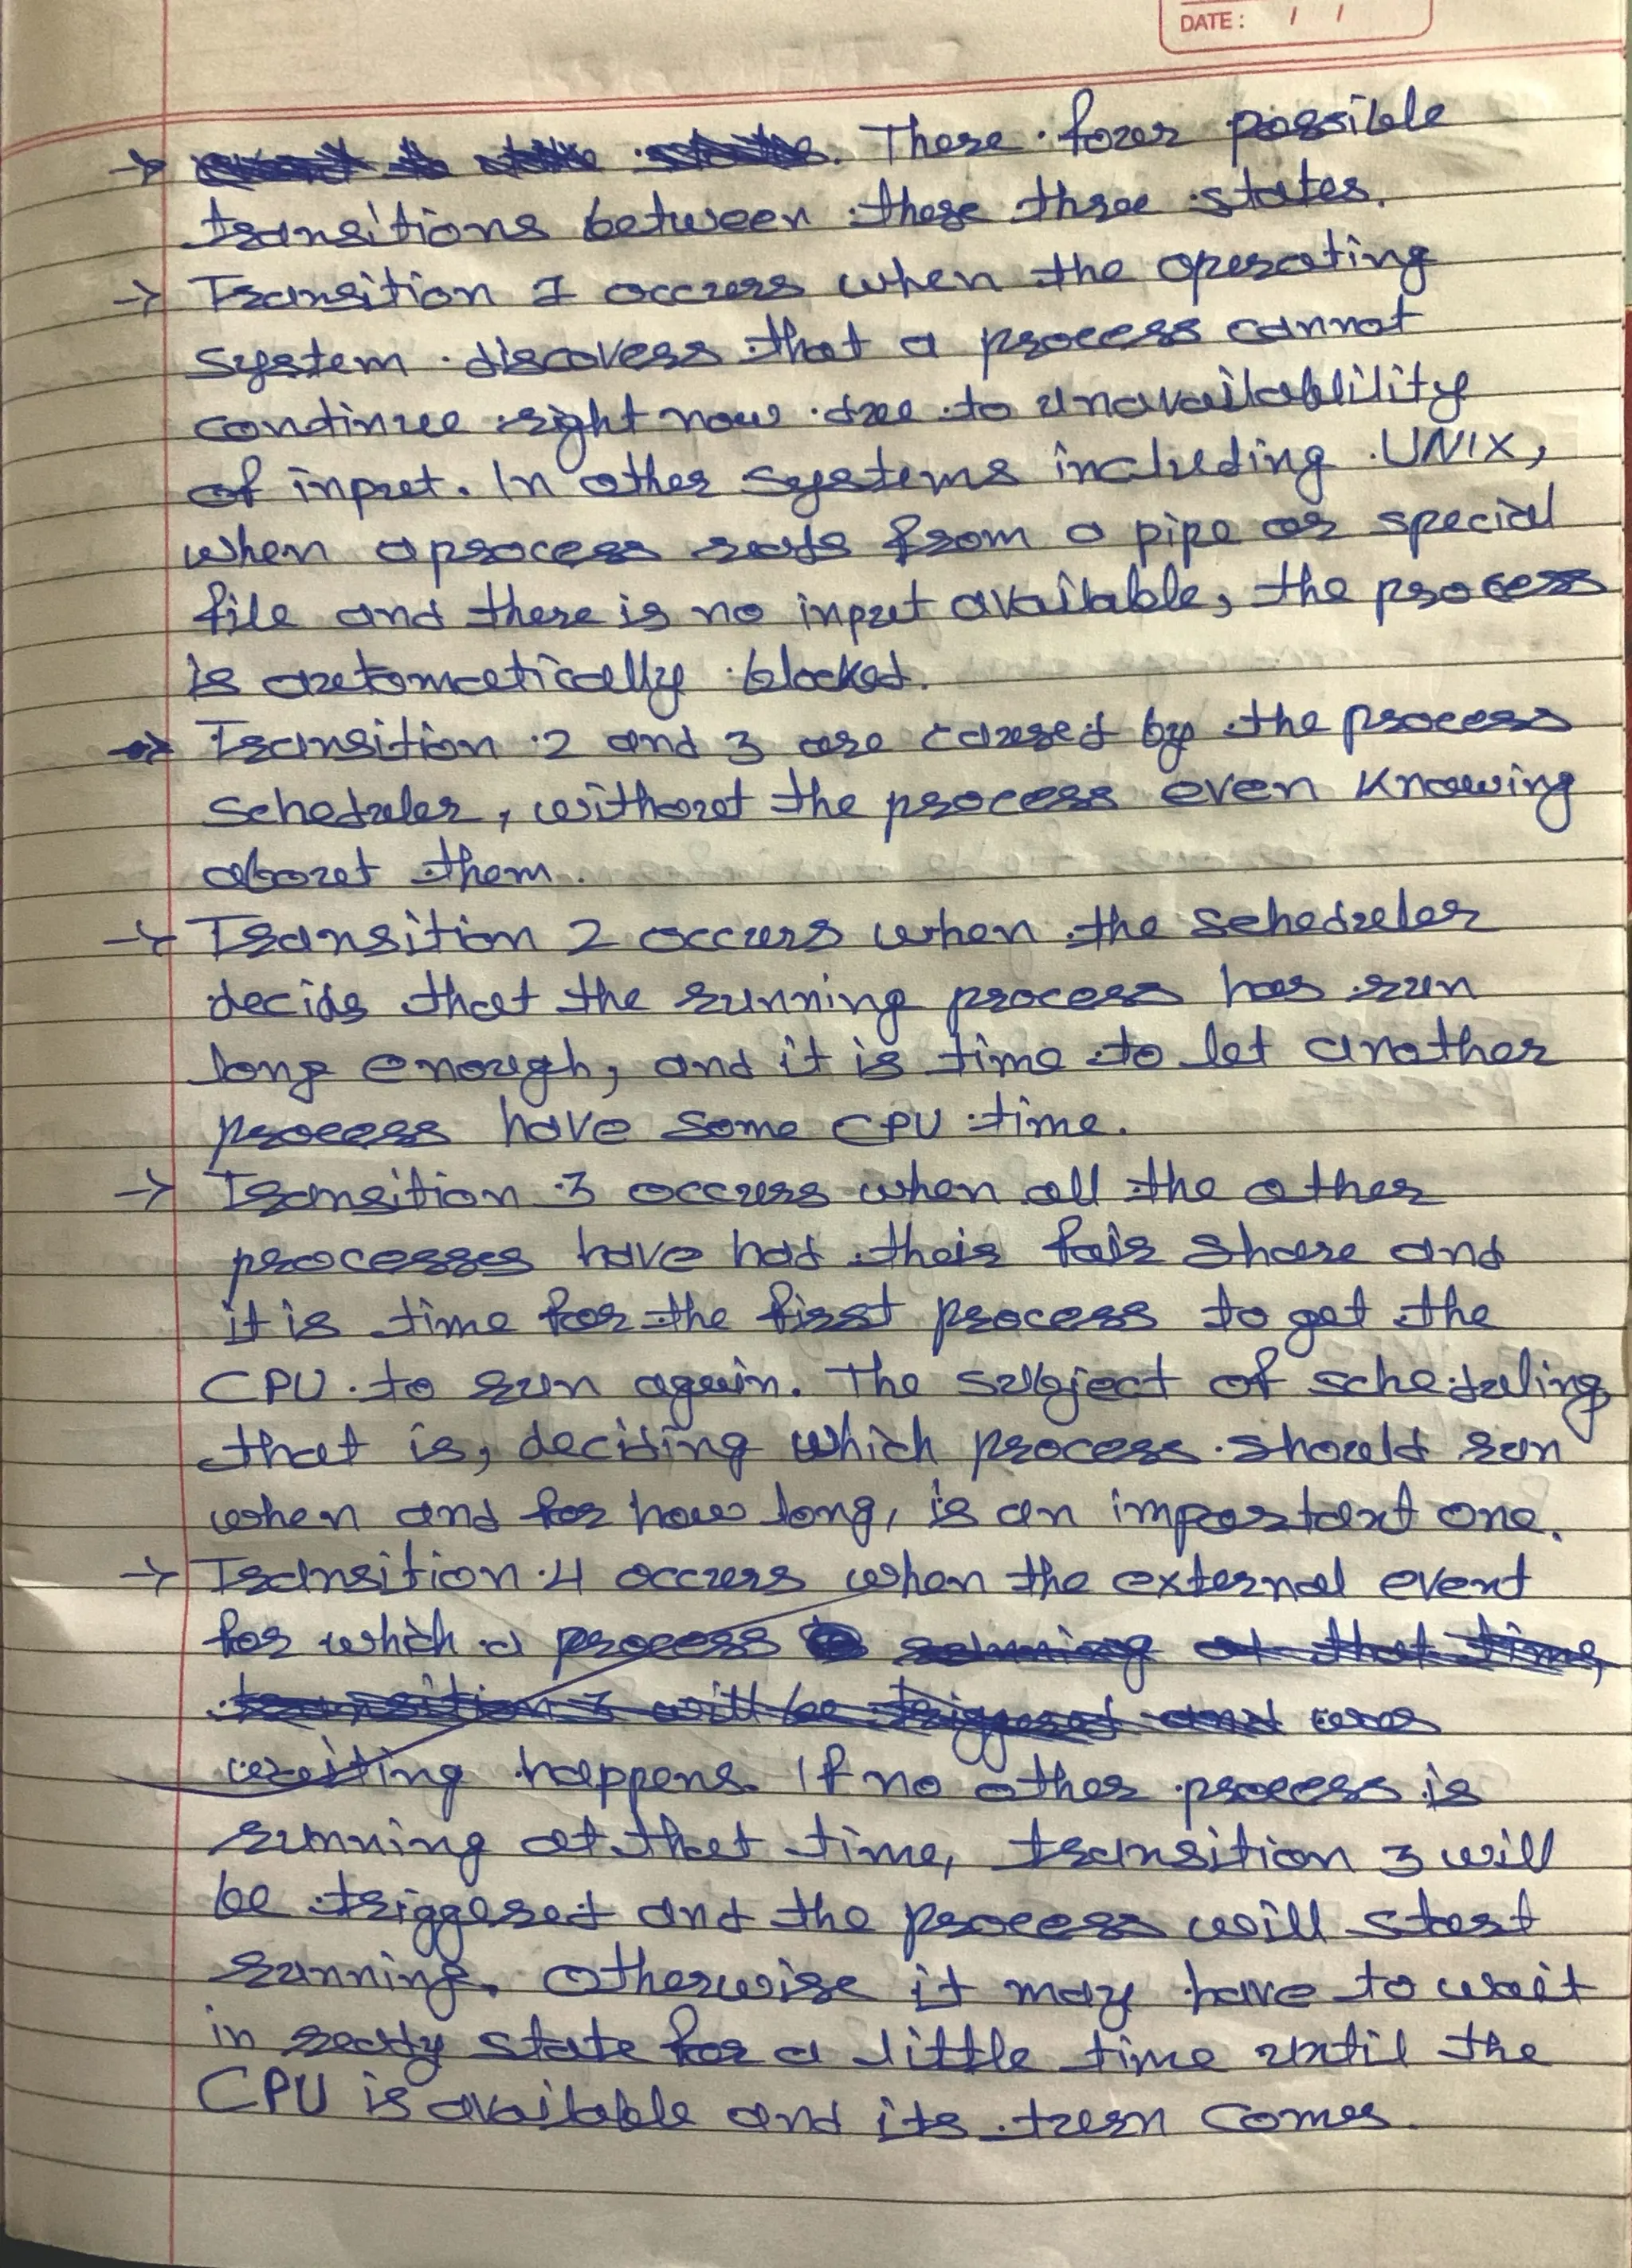 DATE: / /
→ There four possible
transitions between these three states.
→ Transition 1 occurs when the operating
system discovers that a process cannot
continue right now due to unavailablility
of input. In other systems including UNIX,
when a process reads from a pipe or special
file and there is no input available, the process
is automatically blocked.
→ Transition 2 and 3 are caused by the process
scheduler, without the process even knowing
about them.
→ Transition 2 occurs when the scheduler
decids that the running process has run
long enough, and it is time to let another
process have some CPU time.
→ Transition 3 occurs when all the other
processes have had their fair share and
it is time for the first process to get the
CPU to run again. The subject of scheduling,
that is, deciding which process should run
when and for how long, is an important one.
→ Transition 4 occurs when the external event
for which a process running at that time,
transition 3 will be triggered and was
waiting happens. If no other process is
running at that time, transition 3 will
be triggered and the process will start
running. Otherwise it may have to wait
in ready state for a little time until the
CPU is available and its turn comes.